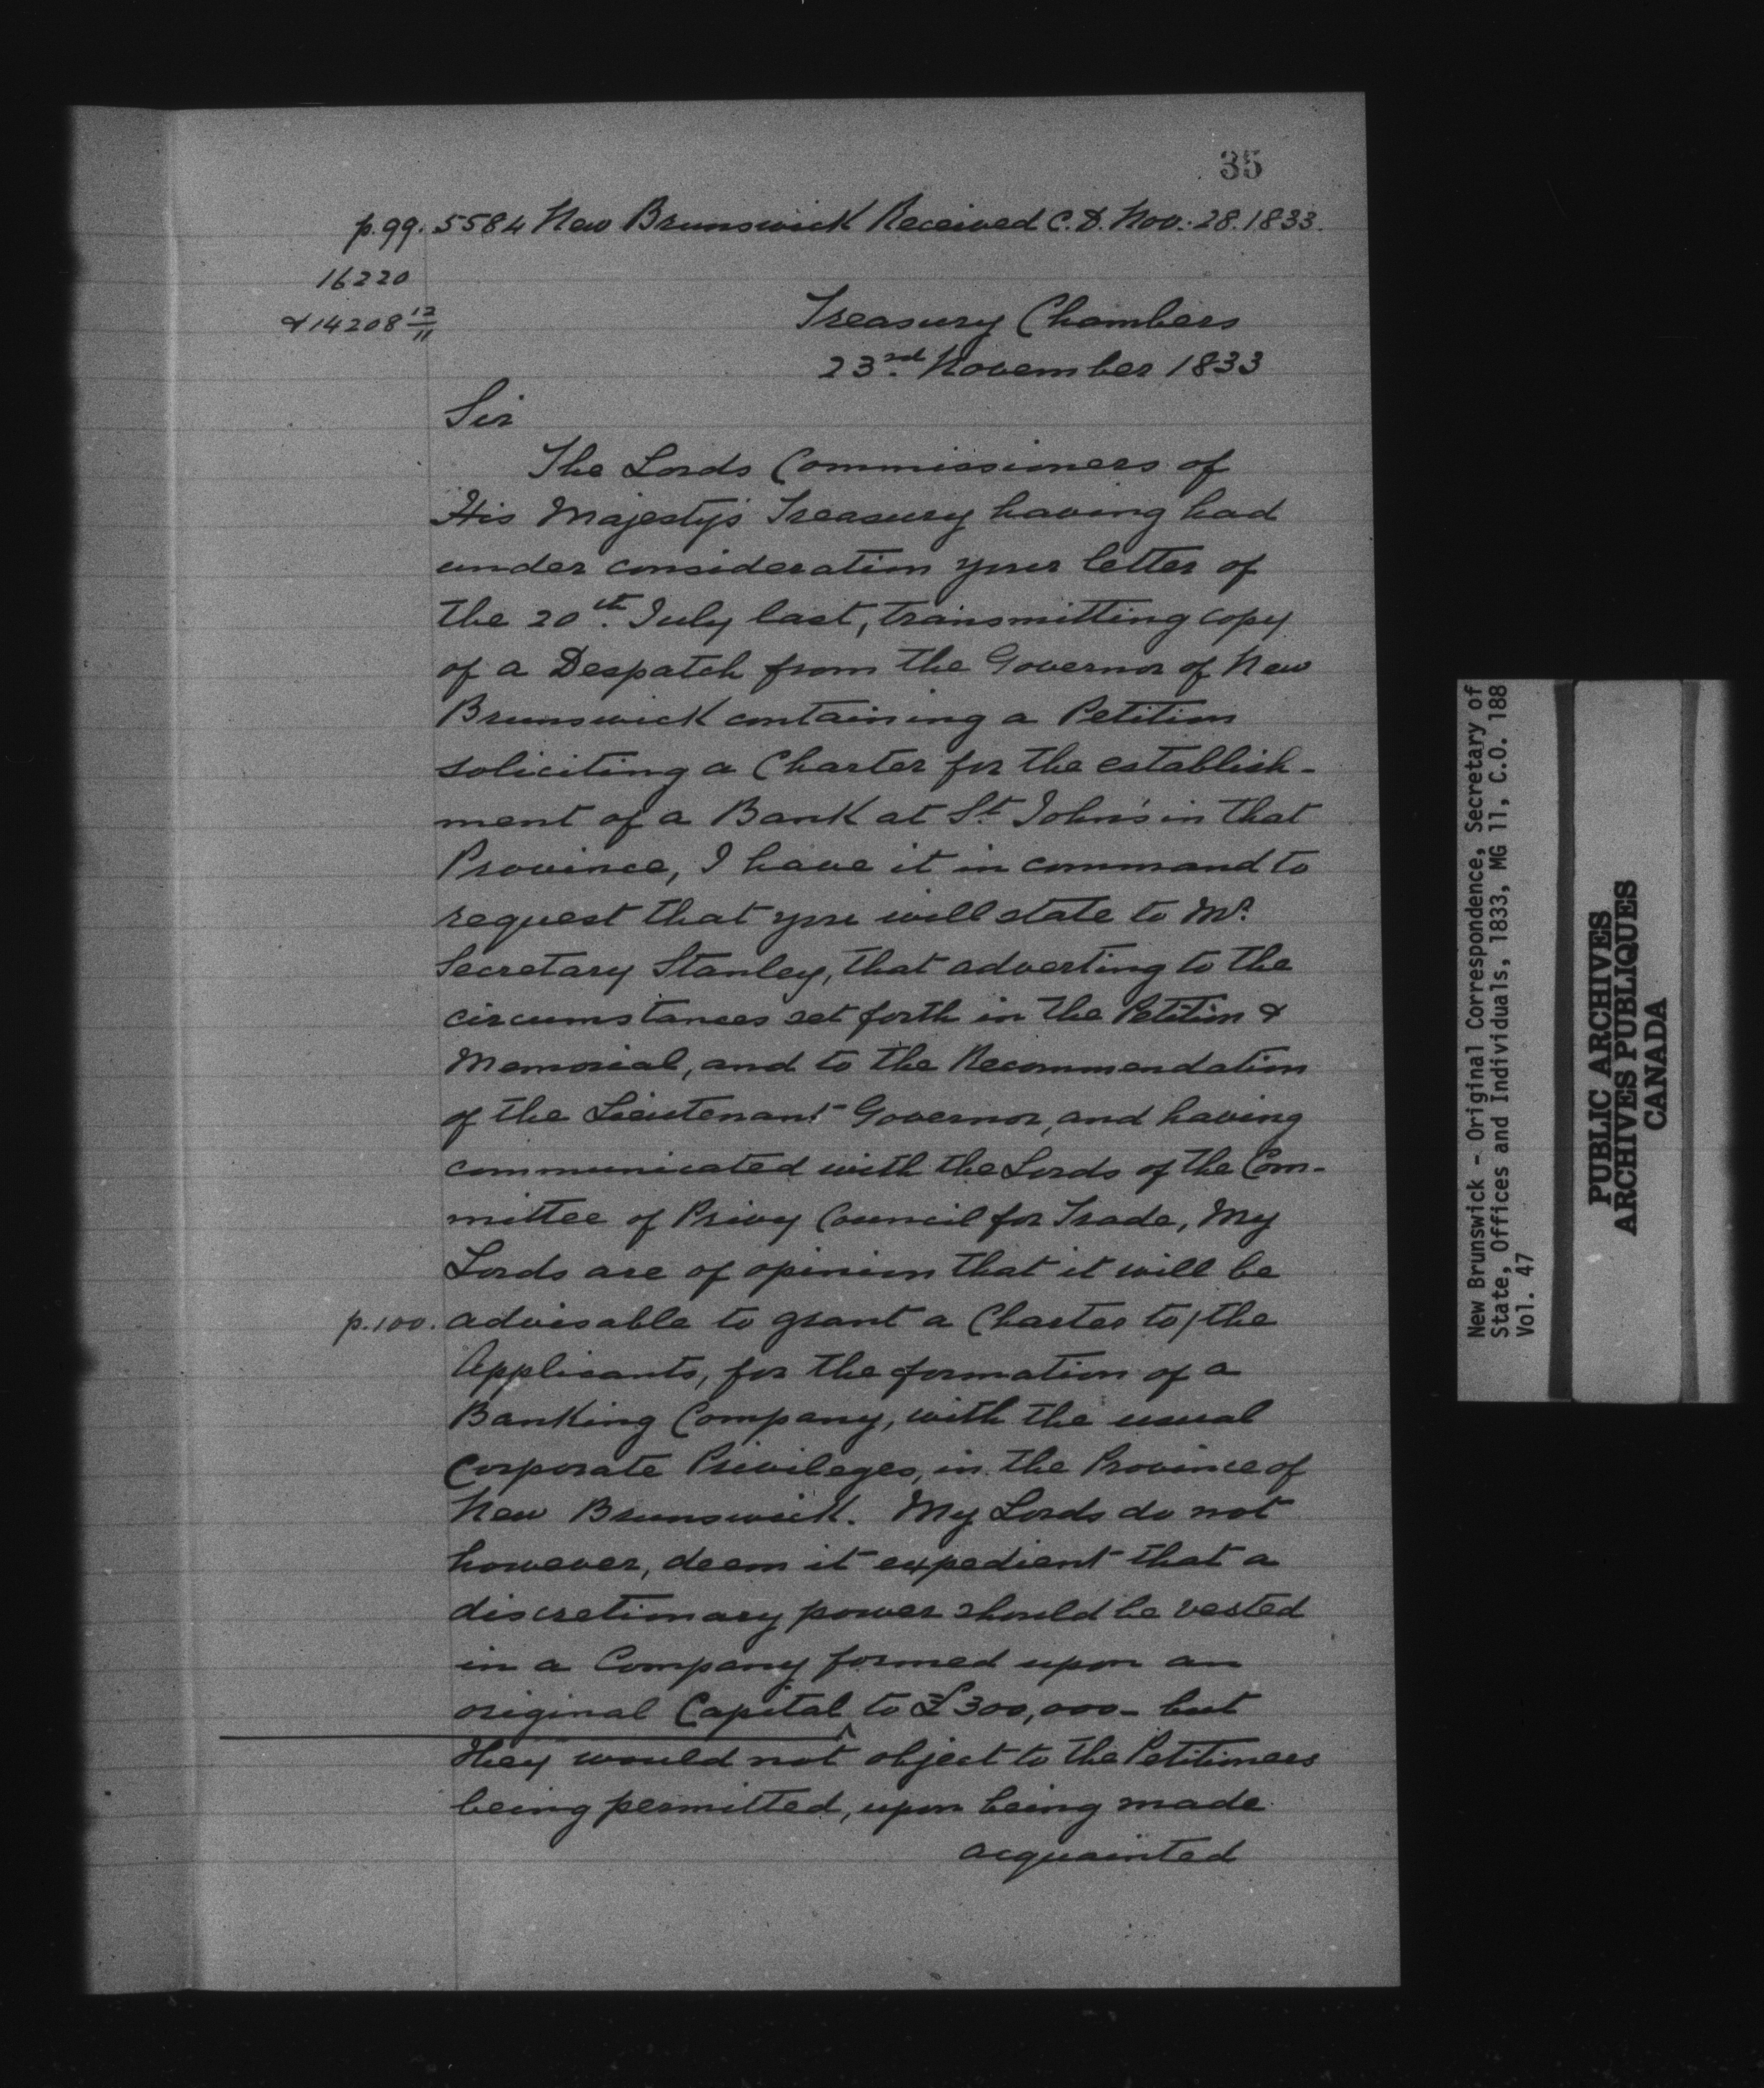 35
p.99. 5584 New Brunswick Received C.D. Nov: 28. 1833.
16220
& 14208 12/11
Treasury Chambers
23rd November 1833
Sir
The Lords Commissioners of
His Majesty's Treasury having had
under consideration your letter of
the 20th. July last, transmitting copy
of a Despatch from the Governor of New
Brunswick containing a Petition
soliciting a Charter for the establish-
ment of a Bank at St. John's in that
Province, I have it in command to
request that you will state to Mr.
Secretary Stanley, that adverting to the
circumstances set forth in the Petition &
Memorial, and to the Recommendation
of the Lieutenant-Governor, and having
communicated with the Lords of the Com-
mittee of Privy Council for Trade, My
Lords are of opinion that it will be
p.100. advisable to grant a Charter to/the
Applicants, for the formation of a
Banking Company, with the usual
Corporate Privileges, in the Province of
New Brunswick. My Lords do not
however, deem it expedient that a
discretionary power should be vested
in a Company formed upon an
original Capital to £300,000 - but
they would not object to the Petitioners
being permitted, upon being made
acquainted
New Brunswick - Original Correspondence, Secretary of
State, Offices and Individuals, 1833, MG 11, C.O. 188
Vol. 47
PUBLIC ARCHIVES
ARCHIVES PUBLIQUES
CANADA